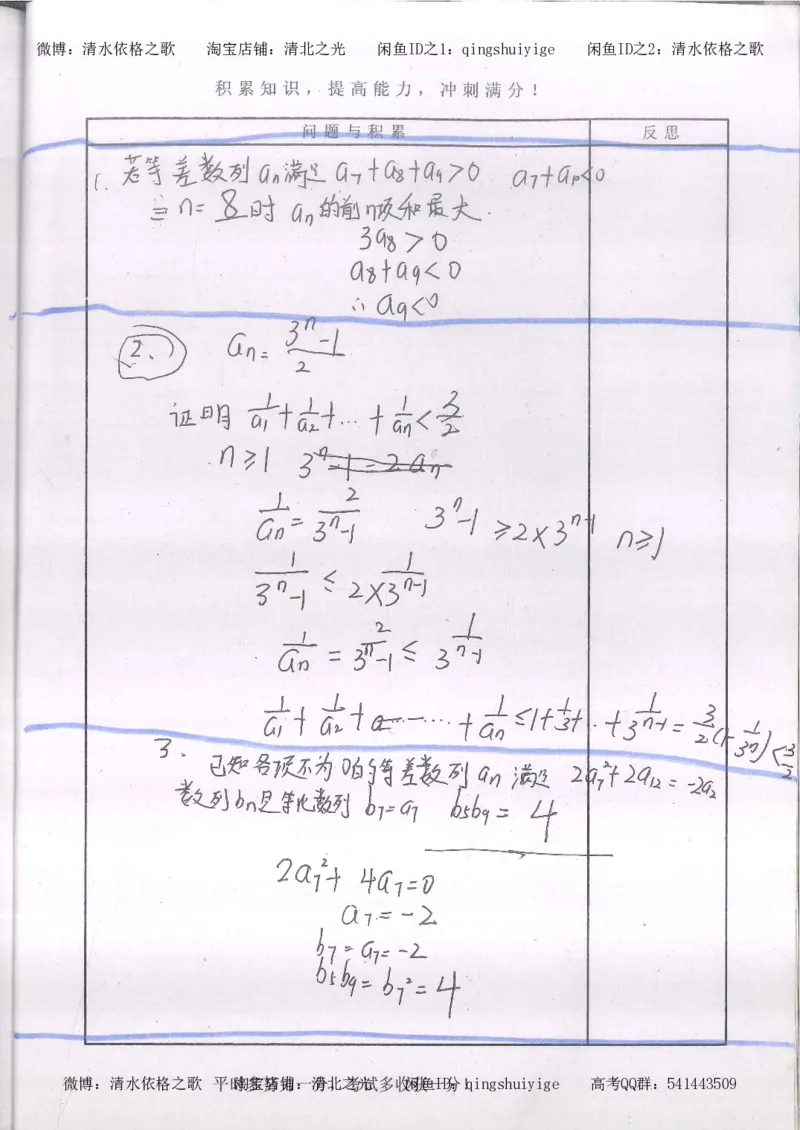 微博：清水依格之歌 淘宝店铺：清北之光 闲鱼ID之1：qingshuiyige 闲鱼ID之2：清水依格之歌
积累知识，提高能力，冲刺满分！
问题与积累 反思
1. 若等差数列an满足 a7+a8+a9>0 a7+a10<0
当n=8时 an的前n项和最大.
3a8>0
a8+a9<0
∴a9<0
2、 an=(3^n-1)/2
证明 1/a1+1/a2+…+1/an<3/2
n≥1 3^n-1=2an
1/an=2/(3^n-1) 3^n-1≥2×3^(n-1) n≥1
1/(3^n-1)≤1/(2×3^(n-1))
1/an=2/(3^n-1)≤1/3^(n-1)
1/a1+1/a2+……+1/an≤1+1/3+…+1/3^(n-1)=3/2(1-1/3^n)<3/2
3. 已知各项不为0的等差数列an 满足 2a7²+2a12=-2a2
数列bn是等比数列 b7=a7 b5b9=4
2a7²+4a7=0
a7=-2
b7=a7=-2
b5b9=b7²=4
微博：清水依格之歌 淘宝店铺：清北之光 闲鱼ID之1：qingshuiyige 高考QQ群：541443509